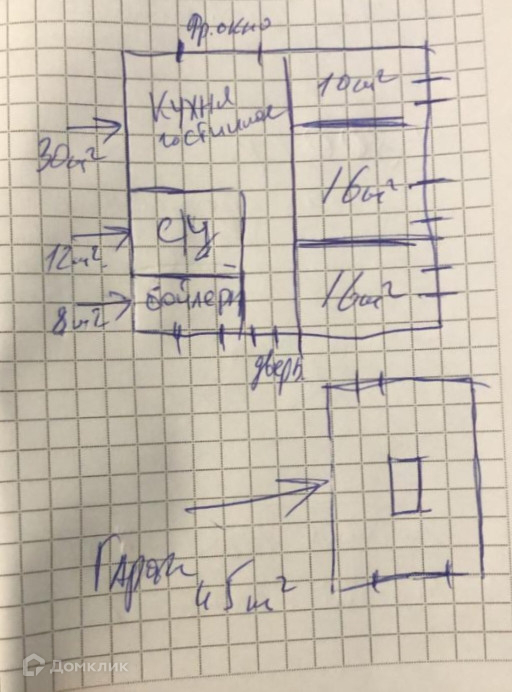 Фр. окно
10 м²
Кухня
гостиная
30 м²
16 м²
с/у
12 м²
16 м²
бойлерн
8 м²
дверь
Гараж
45 м²
Домклик